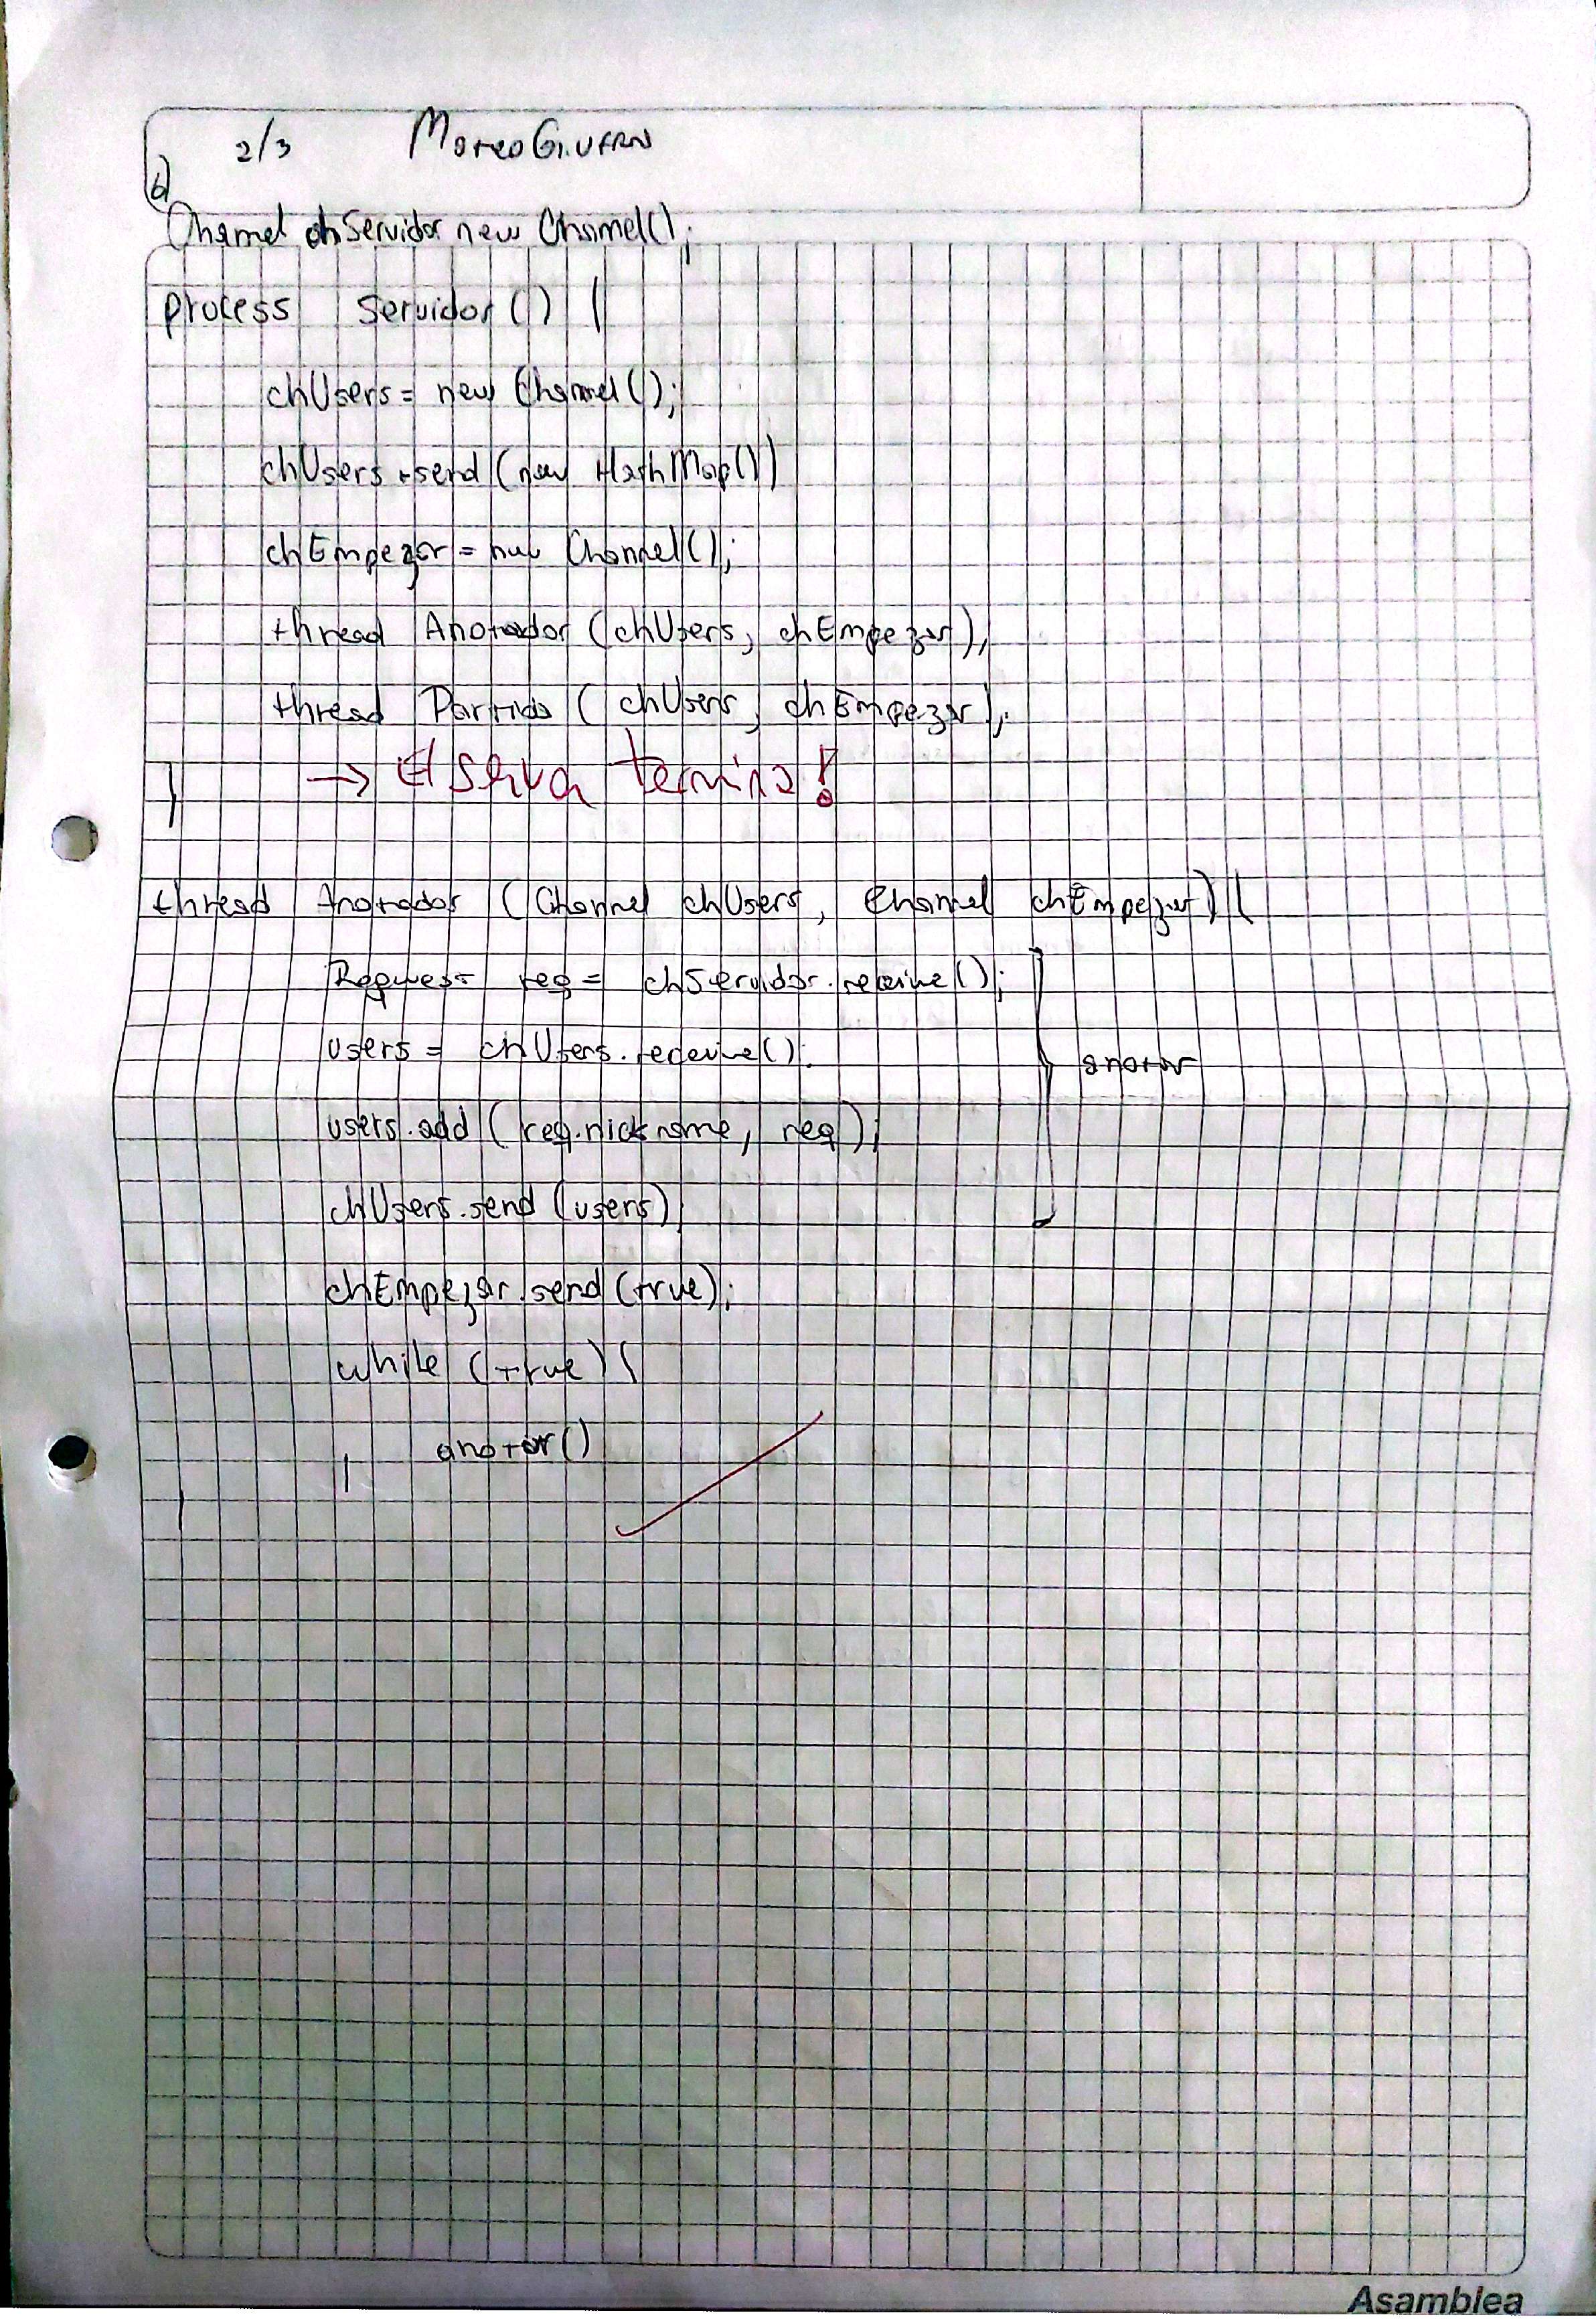 2/3 Mateo Giuffra
b)
Channel chServidor new Channel();
process Servidor() {
chUsers = new Channel();
chUsers.send(new HashMap())
chEmpezar = new Channel();
thread Anotador (chUsers, chEmpezar);
thread Partida (chUsers, chEmpezar);
→ El server termina!
}
thread Anotador (Channel chUsers, Channel chEmpezar) {
Request req = chServidor.receive();
users = chUsers.receive(); anotar
users.add(req.nickname, req);
chUsers.send(users);
chEmpezar.send(true);
while (true) {
anotar()
}
}
Asamblea